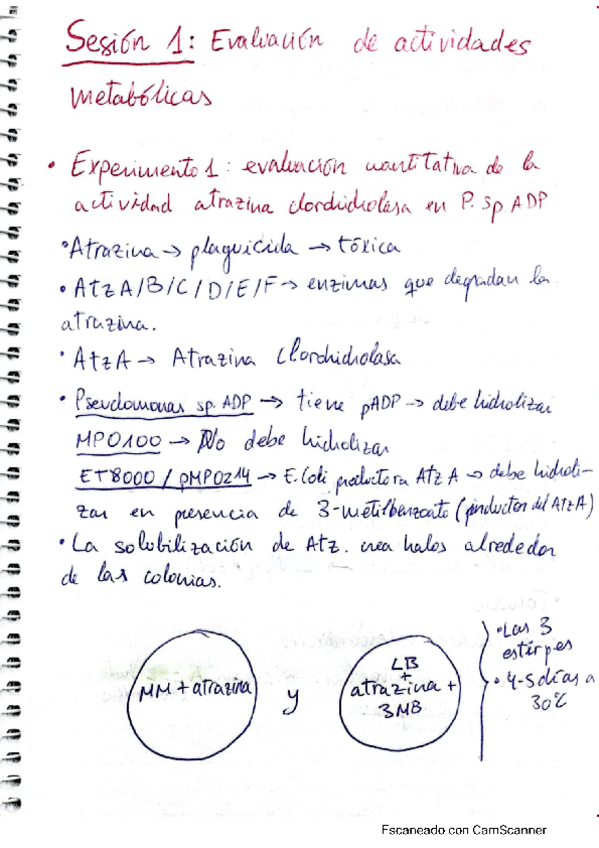 Sesión 1: Evaluación de actividades
metabólicas
• Experimento 1: evaluación cuantitativa de la
actividad atrazina clorohidrolasa en P. sp ADP
• Atrazina → plaguicida → tóxica
• AtzA/B/C/D/E/F → enzimas que degradan la
atrazina.
• AtzA → Atrazina Clorohidrolasa
• Pseudomonas sp. ADP → tiene pADP → debe hidrolizar
MPO100 → No debe hidrolizar
ET8000 / pMPO214 → E. Coli productora AtzA → debe hidroli-
zar en presencia de 3-metilbenzoato (inductor del AtzA)
• La solubilización de Atz. crea halos alrededor
de las colonias.
MM + atrazina
y
LB
+
atrazina +
3MB
• Las 3
estirpes
• 4-5 días a
30ºC
Escaneado con CamScanner